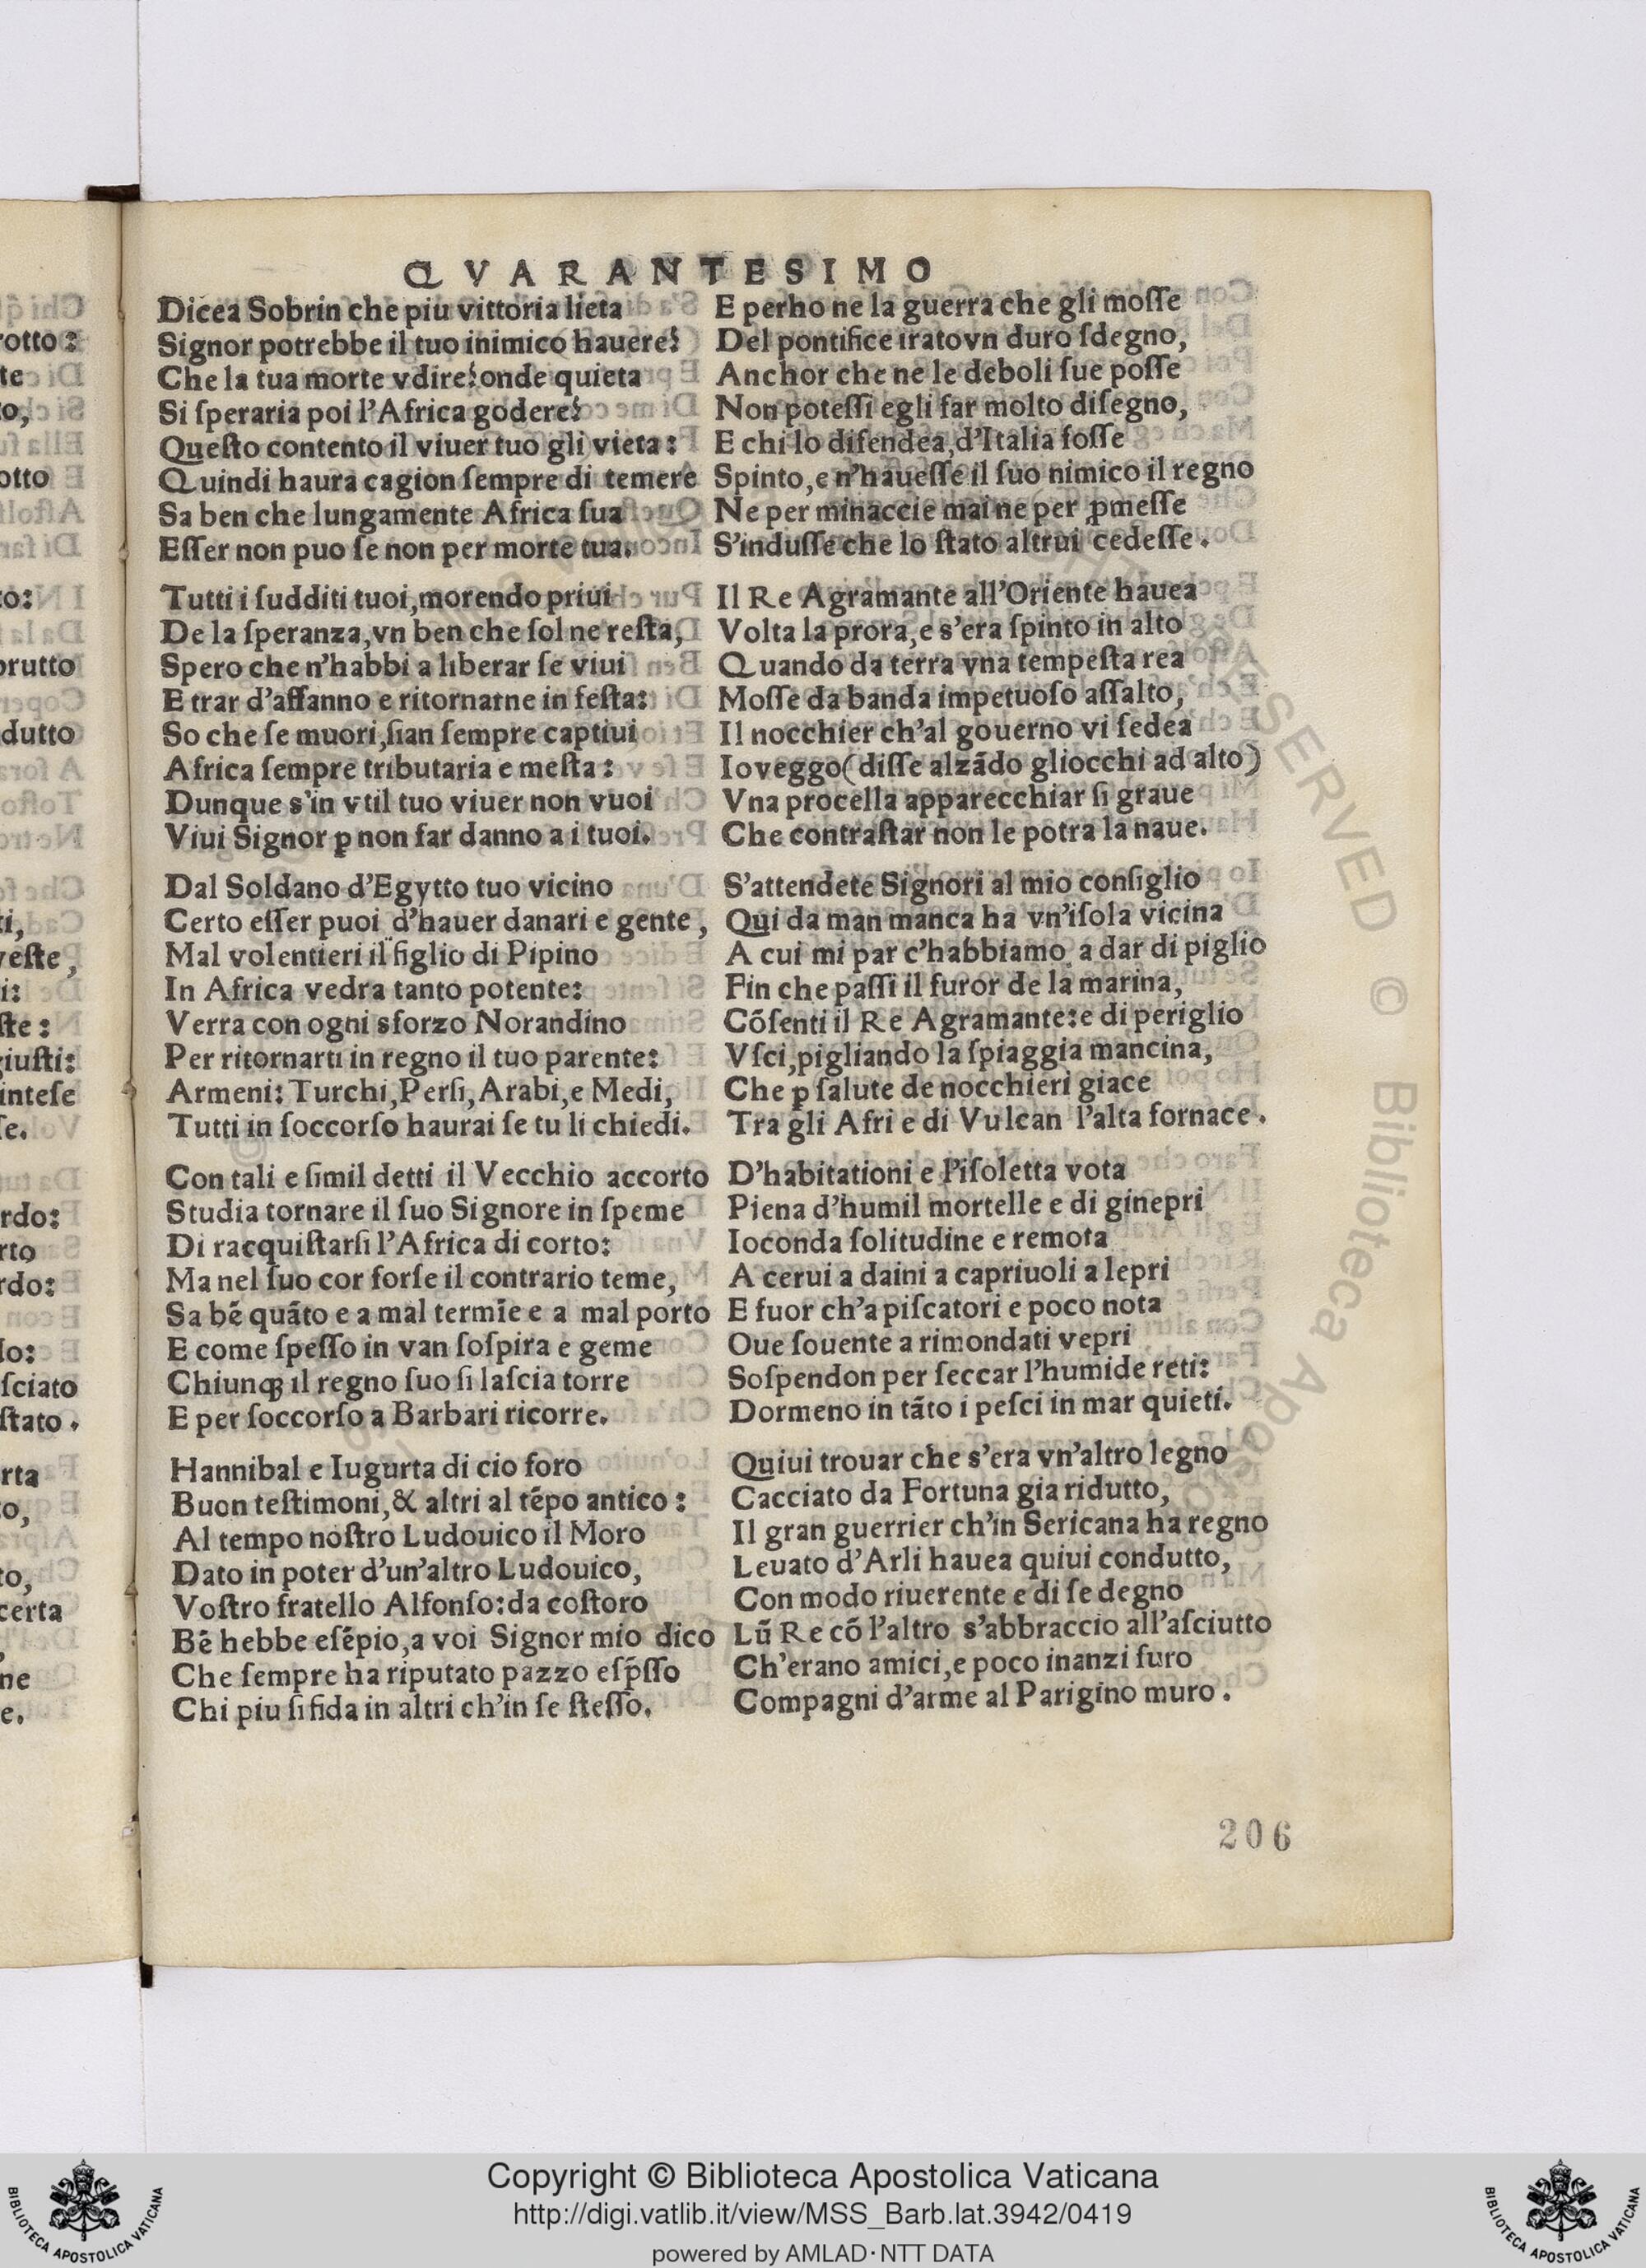 QVARANTESIMO
Dicea Sobrin che piu vittoria lieta
Signor potrebbe il tuo inimico hauere?
Che la tua morte vdire? onde quieta
Si ſperaria poi l'Africa godere?
Queſto contento il viuer tuo gli vieta:
Quindi haura cagion ſempre di temere
Sa ben che lungamente Africa ſua
Eſſer non puo ſe non per morte tua.
Tutti i ſudditi tuoi, morendo priui
De la ſperanza, vn ben che ſol ne reſta,
Spero che n'habbi a liberar ſe viui
E trar d'affanno e ritornarne in feſta:
So che ſe muori, ſian ſempre captiui
Africa ſempre tributaria e meſta:
Dunque s'in vtil tuo viuer non vuoi
Viui Signor ꝑ non far danno a i tuoi.
Dal Soldano d'Egytto tuo vicino
Certo eſſer puoi d'hauer danari e gente,
Mal volentieri il figlio di Pipino
In Africa vedra tanto potente:
Verra con ogni sforzo Norandino
Per ritornarti in regno il tuo parente:
Armeni: Turchi, Perſi, Arabi, e Medi,
Tutti in ſoccorſo haurai ſe tu li chiedi.
Con tali e ſimil detti il Vecchio accorto
Studia tornare il ſuo Signore in ſpeme
Di racquiſtarſi l'Africa di corto:
Ma nel ſuo cor forſe il contrario teme,
Sa bẽ quãto e a mal termĩe e a mal porto
E come ſpeſſo in van ſoſpira e geme
Chiunqꝫ il regno ſuo ſi laſcia torre
E per ſoccorſo a Barbari ricorre.
Hannibal e Iugurta di cio foro
Buon teſtimoni, & altri al tẽpo antico:
Al tempo noſtro Ludouico il Moro
Dato in poter d'un'altro Ludouico,
Voſtro fratello Alfonſo: da coſtoro
Bẽ hebbe eſẽpio, a voi Signor mio dico
Che ſempre ha riputato pazzo eſp̃ſſo
Chi piu ſi fida in altri ch'in ſe ſteſſo.
E perho ne la guerra che gli moſſe
Del pontifice irato vn duro ſdegno,
Anchor che ne le deboli ſue poſſe
Non poteſſi egli far molto diſegno,
E chi lo difendea, d'Italia foſſe
Spinto, e n'haueſſe il ſuo nimico il regno
Ne per minaccie mai ne per ꝓmeſſe
S'induſſe che lo ſtato altrui cedeſſe.
Il Re Agramante all'Oriente hauea
Volta la prora, e s'era ſpinto in alto
Quando da terra vna tempeſta rea
Moſſe da banda impetuoſo aſſalto,
Il nocchier ch'al gouerno vi ſedea
Io veggo (diſſe alzãdo gliocchi ad alto)
Vna procella apparecchiar ſi graue
Che contraſtar non le potra la naue.
S'attendete Signori al mio conſiglio
Qui da man manca ha vn'iſola vicina
A cui mi par c'habbiamo a dar di piglio
Fin che paſſi il furor de la marina,
Cõſenti il Re Agramante: e di periglio
Vſci, pigliando la ſpiaggia mancina,
Che ꝑ ſalute de nocchieri giace
Tra gli Afri e di Vulcan l'alta fornace.
D'habitationi e l'iſoletta vota
Piena d'humil mortelle e di ginepri
Ioconda ſolitudine e remota
A cerui a daini a capriuoli a lepri
E fuor ch'a piſcatori e poco nota
Oue ſouente a rimondati vepri
Soſpendon per ſeccar l'humide reti:
Dormeno in tãto i peſci in mar quieti.
Quiui trouar che s'era vn'altro legno
Cacciato da Fortuna gia ridutto,
Il gran guerrier ch'in Sericana ha regno
Leuato d'Arli hauea quiui condutto,
Con modo riuerente e di ſe degno
Lũ Re cõ l'altro s'abbraccio all'aſciutto
Ch'erano amici, e poco inanzi furo
Compagni d'arme al Parigino muro.
206
Copyright © Biblioteca Apostolica Vaticana
http://digi.vatlib.it/view/MSS_Barb.lat.3942/0419
powered by AMLAD·NTT DATA